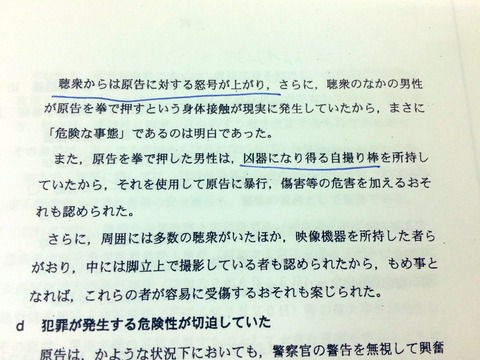 聴衆からは原告に対する怒号が上がり，さらに，聴衆のなかの男性
が原告を拳で押すという身体接触が現実に発生していたから，まさに
「危険な事態」であるのは明白であった。
また，原告を拳で押した男性は，凶器になり得る自撮り棒を所持し
ていたから，それを使用して原告に暴行，傷害等の危害を加えるおそ
れも認められた。
さらに，周囲には多数の聴衆がいたほか，映像機器を所持した者ら
がおり，中には脚立上で撮影している者も認められたから，もめ事と
なれば，これらの者が容易に受傷するおそれも案じられた。
d 犯罪が発生する危険性が切迫していた
原告は，かような状況下においても，警察官の警告を無視して興奮